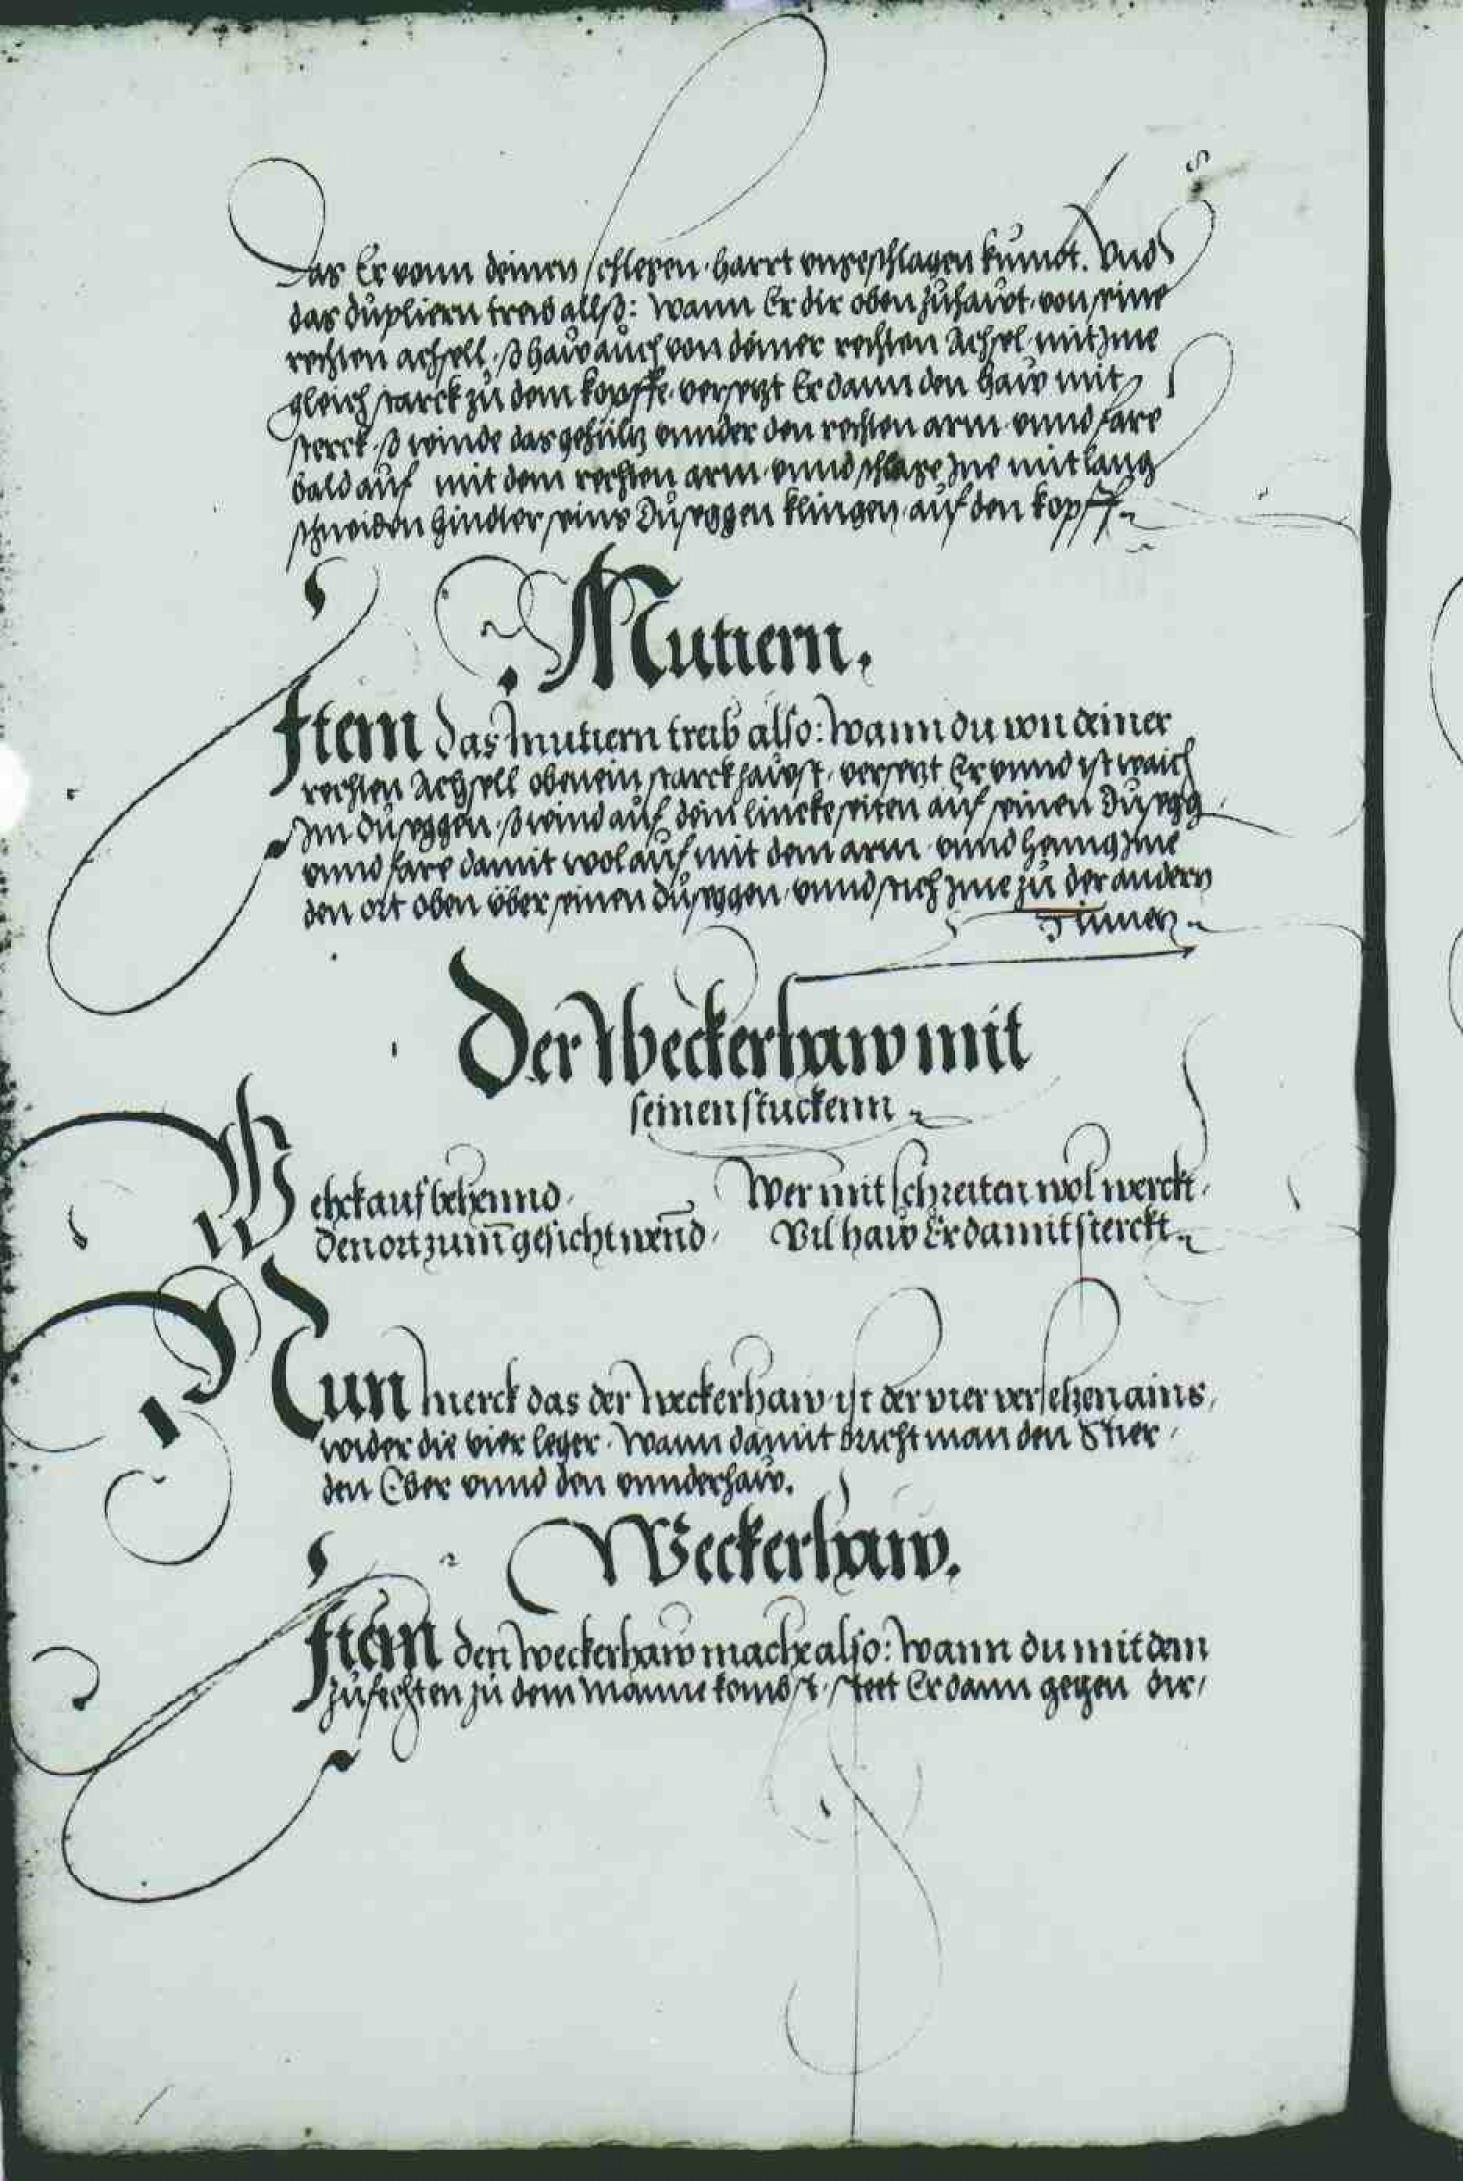 8
Das Er vonn deinen schlegen hartt ungeschlagen kumbt. Und
das dupliern treib allß: wann Er dir oben zuhawt von seine
rechten achsell, ß haw auch von deiner rechten Achsel mit Ime
gleich starck zu dem kopffe, versetzt Er dann den haw mit
sterck, ß winde das gehültz unnder den rechten arm unnd fare
bald auf mit dem rechten arm unnd schlage Ine mit lang
schneiden hindter seins Duseggen klingen auf den kopff
Mutiern.
Item das mutiern treib also: wann du von deiner
rechten Achsell oben ein starck hawst, versetzt Er unnd ist waich
Im Duseggen, ß wind auf dein lincke seiten auf seinen Dusegg
unnd fare damit wol auf mit dem arm unnd heng Ime
den ort oben über seinen Duseggen unnd stich Ime zu der andern
Der Weckerhaw mit
seinen stuckenn
Weckauf behennd, Wer mit schreiten wol werckt,
den ort zum gesicht wend, Vil haw Er damit sterckt
Nun merck das der weckerhaw ist der vier versetzen ains,
wider die vier leger, wann damit bricht man den Stier,
den Eber unnd den unnderhaw.
Weckerhaw.
Item den weckerhaw mache also: wann du mit dem
zufechten zu dem Manne kombst, steet Er dann gegen dir,